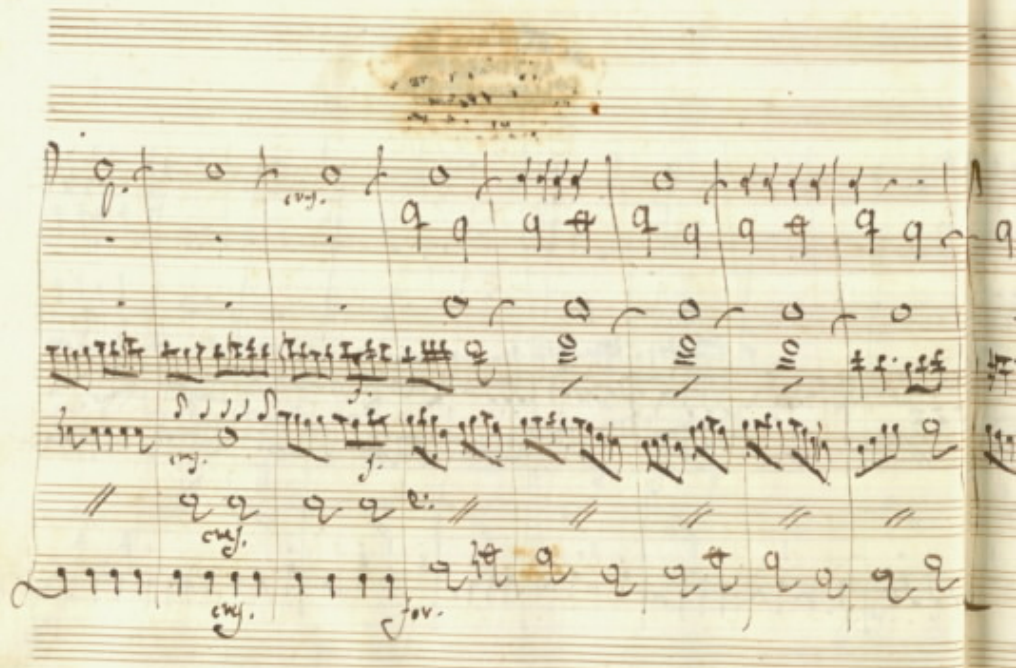 p.
cresc.
f.
cresc.
f.
cresc.
cresc.
for.